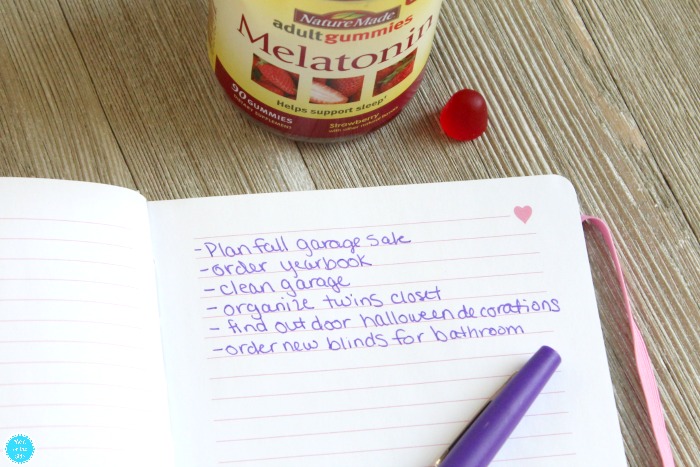 NatureMade
adultgummies
Melatonin
90 GUMMIES
DIETARY SUPPLEMENT
Helps support sleep†
Strawberry
with other natural flavors
-Plan fall garage sale
-order yearbook
-clean garage
-organize twins closet
- find outdoor halloween decorations
-order new blinds for bathroom